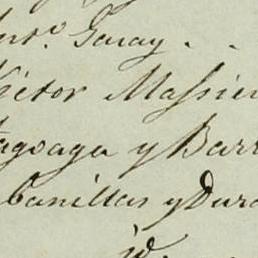 Ant.º Garay . .
Victor Massieu
agoaga y Barr
Canillas y Dura
id.